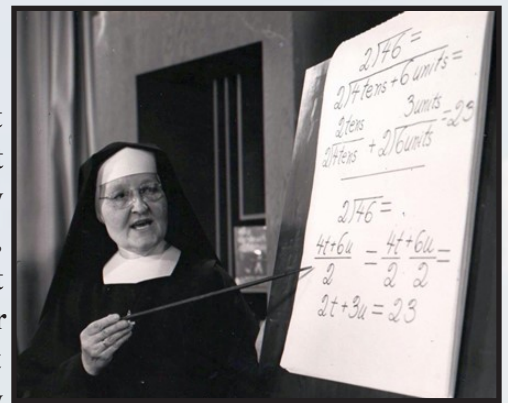 2√46 =
2√4tens+6units =
2tens 3units
2√4tens + 2√6units = 23
2√46 = .
4t+6u = 4t+6u =
2 2 2
2t+3u = 23